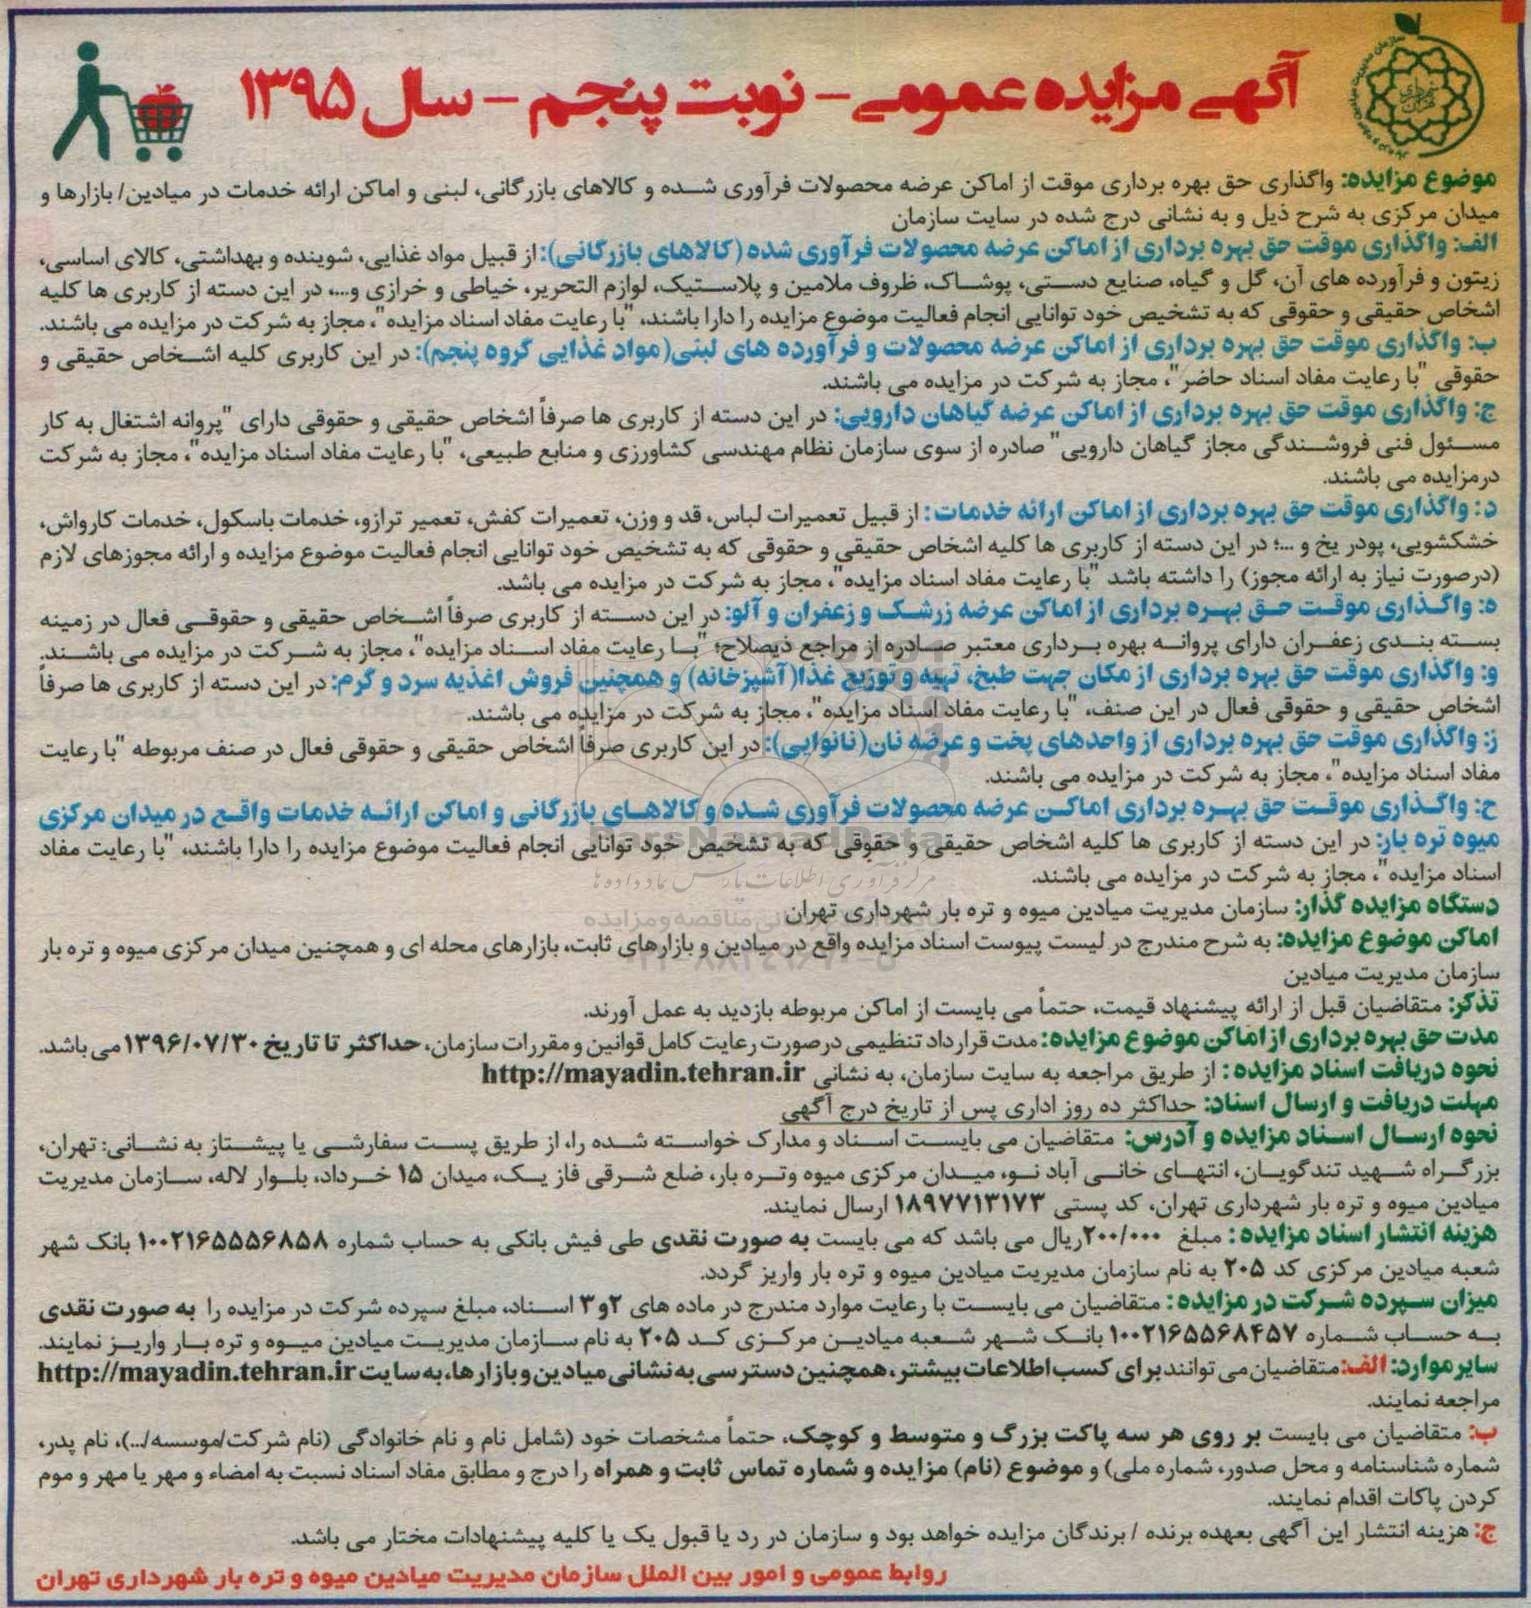 آگهی مزایده عمومی - نوبت پنجم - سال ۱۳۹۵
موضوع مزایده: واگذاری حق بهره برداری موقت از اماکن عرضه محصولات فرآوری شده و کالاهای بازرگانی، لبنی و اماکن ارائه خدمات در میادین/ بازارها و
میدان مرکزی به شرح ذیل و به نشانی درج شده در سایت سازمان
الف: واگذاری موقت حق بهره برداری از اماکن عرضه محصولات فرآوری شده (کالاهای بازرگانی): از قبیل مواد غذایی، شوینده و بهداشتی، کالای اساسی،
زیتون و فرآورده های آن، گل و گیاه، صنایع دستی، پوشاک، ظروف ملامین و پلاستیک، لوازم التحریر، خیاطی و خرازی و...، در این دسته از کاربری ها کلیه
اشخاص حقیقی و حقوقی که به تشخیص خود توانایی انجام فعالیت موضوع مزایده را دارا باشند، "با رعایت مفاد اسناد مزایده"، مجاز به شرکت در مزایده می باشند.
ب: واگذاری موقت حق بهره برداری از اماکن عرضه محصولات و فرآورده های لبنی(مواد غذایی گروه پنجم): در این کاربری کلیه اشخاص حقیقی و
حقوقی "با رعایت مفاد اسناد حاضر"، مجاز به شرکت در مزایده می باشند.
ج: واگذاری موقت حق بهره برداری از اماکن عرضه گیاهان دارویی: در این دسته از کاربری ها صرفاً اشخاص حقیقی و حقوقی دارای "پروانه اشتغال به کار
مسئول فنی فروشندگی مجاز گیاهان دارویی" صادره از سوی سازمان نظام مهندسی کشاورزی و منابع طبیعی، "با رعایت مفاد اسناد مزایده"، مجاز به شرکت
درمزایده می باشند.
د: واگذاری موقت حق بهره برداری از اماکن ارائه خدمات: از قبیل تعمیرات لباس، قد و وزن، تعمیرات کفش، تعمیر ترازو، خدمات باسکول، خدمات کارواش،
خشکشویی، پودر یخ و ...؛ در این دسته از کاربری ها کلیه اشخاص حقیقی و حقوقی که به تشخیص خود توانایی انجام فعالیت موضوع مزایده و ارائه مجوزهای لازم
(درصورت نیاز به ارائه مجوز) را داشته باشد "با رعایت مفاد اسناد مزایده"، مجاز به شرکت در مزایده می باشد.
ه: واگذاری موقت حق بهره برداری از اماکن عرضه زرشک و زعفران و آلو: در این دسته از کاربری صرفاً اشخاص حقیقی و حقوقی فعال در زمینه
بسته بندی زعفران دارای پروانه بهره برداری معتبر صادره از مراجع ذیصلاح؛ "با رعایت مفاد اسناد مزایده"، مجاز به شرکت در مزایده می باشند.
و: واگذاری موقت حق بهره برداری از مکان جهت طبخ، تهیه و توزیع غذا(آشپزخانه) و همچنین فروش اغذیه سرد و گرم: در این دسته از کاربری ها صرفاً
اشخاص حقیقی و حقوقی فعال در این صنف، "با رعایت مفاد اسناد مزایده"، مجاز به شرکت در مزایده می باشند.
ز: واگذاری موقت حق بهره برداری از واحدهای پخت و عرضه نان(نانوایی): در این کاربری صرفاً اشخاص حقیقی و حقوقی فعال در صنف مربوطه "با رعایت
مفاد اسناد مزایده"، مجاز به شرکت در مزایده می باشند.
ح: واگذاری موقت حق بهره برداری اماکن عرضه محصولات فرآوری شده و کالاهای بازرگانی و اماکن ارائه خدمات واقع در میدان مرکزی
میوه تره بار: در این دسته از کاربری ها کلیه اشخاص حقیقی و حقوقی که به تشخیص خود توانایی انجام فعالیت موضوع مزایده را دارا باشند، "با رعایت مفاد
اسناد مزایده"، مجاز به شرکت در مزایده می باشند.
دستگاه مزایده گذار: سازمان مدیریت میادین میوه و تره بار شهرداری تهران
اماکن موضوع مزایده: به شرح مندرج در لیست پیوست اسناد مزایده واقع در میادین و بازارهای ثابت، بازارهای محله ای و همچنین میدان مرکزی میوه و تره بار
سازمان مدیریت میادین
تذکر: متقاضیان قبل از ارائه پیشنهاد قیمت، حتماً می بایست از اماکن مربوطه بازدید به عمل آورند.
مدت حق بهره برداری از اماکن موضوع مزایده: مدت قرارداد تنظیمی درصورت رعایت کامل قوانین و مقررات سازمان، حداکثر تا تاریخ ۱۳۹۶/۰۷/۳۰ می باشد.
نحوه دریافت اسناد مزایده: از طریق مراجعه به سایت سازمان، به نشانی http://mayadin.tehran.ir
مهلت دریافت و ارسال اسناد: حداکثر ده روز اداری پس از تاریخ درج آگهی
نحوه ارسال اسناد مزایده و آدرس: متقاضیان می بایست اسناد و مدارک خواسته شده را، از طریق پست سفارشی یا پیشتاز به نشانی: تهران،
بزرگراه شهید تندگویان، انتهای خانی آباد نو، میدان مرکزی میوه وتره بار، ضلع شرقی فاز یک، میدان ۱۵ خرداد، بلوار لاله، سازمان مدیریت
میادین میوه و تره بار شهرداری تهران، کد پستی ۱۸۹۷۷۱۳۱۷۳ ارسال نمایند.
هزینه انتشار اسناد مزایده: مبلغ ۲۰۰/۰۰۰ریال می باشد که می بایست به صورت نقدی طی فیش بانکی به حساب شماره ۱۰۰۲۱۶۵۵۵۶۸۵۸ بانک شهر
شعبه میادین مرکزی کد ۲۰۵ به نام سازمان مدیریت میادین میوه و تره بار واریز گردد.
میزان سپرده شرکت در مزایده: متقاضیان می بایست با رعایت موارد مندرج در ماده های ۲و۳ اسناد، مبلغ سپرده شرکت در مزایده را به صورت نقدی
به حساب شماره ۱۰۰۲۱۶۵۵۶۸۴۵۷ بانک شهر شعبه میادین مرکزی کد ۲۰۵ به نام سازمان مدیریت میادین میوه و تره بار واریز نمایند.
سایر موارد: الف: متقاضیان می توانند برای کسب اطلاعات بیشتر، همچنین دسترسی به نشانی میادین و بازارها، به سایت http://mayadin.tehran.ir
مراجعه نمایند.
ب: متقاضیان می بایست بر روی هر سه پاکت بزرگ و متوسط و کوچک، حتماً مشخصات خود (شامل نام و نام خانوادگی (نام شرکت/موسسه/...)، نام پدر،
شماره شناسنامه و محل صدور، شماره ملی) و موضوع (نام) مزایده و شماره تماس ثابت و همراه را درج و مطابق مفاد اسناد نسبت به امضاء و مهر یا مهر و موم
کردن پاکات اقدام نمایند.
ج: هزینه انتشار این آگهی بعهده برنده / برندگان مزایده خواهد بود و سازمان در رد یا قبول یک یا کلیه پیشنهادات مختار می باشد.
روابط عمومی و امور بین الملل سازمان مدیریت میادین میوه و تره بار شهرداری تهران
ParsNamadData
مرکز فرآوری اطلاعات پارس نماد داده ها